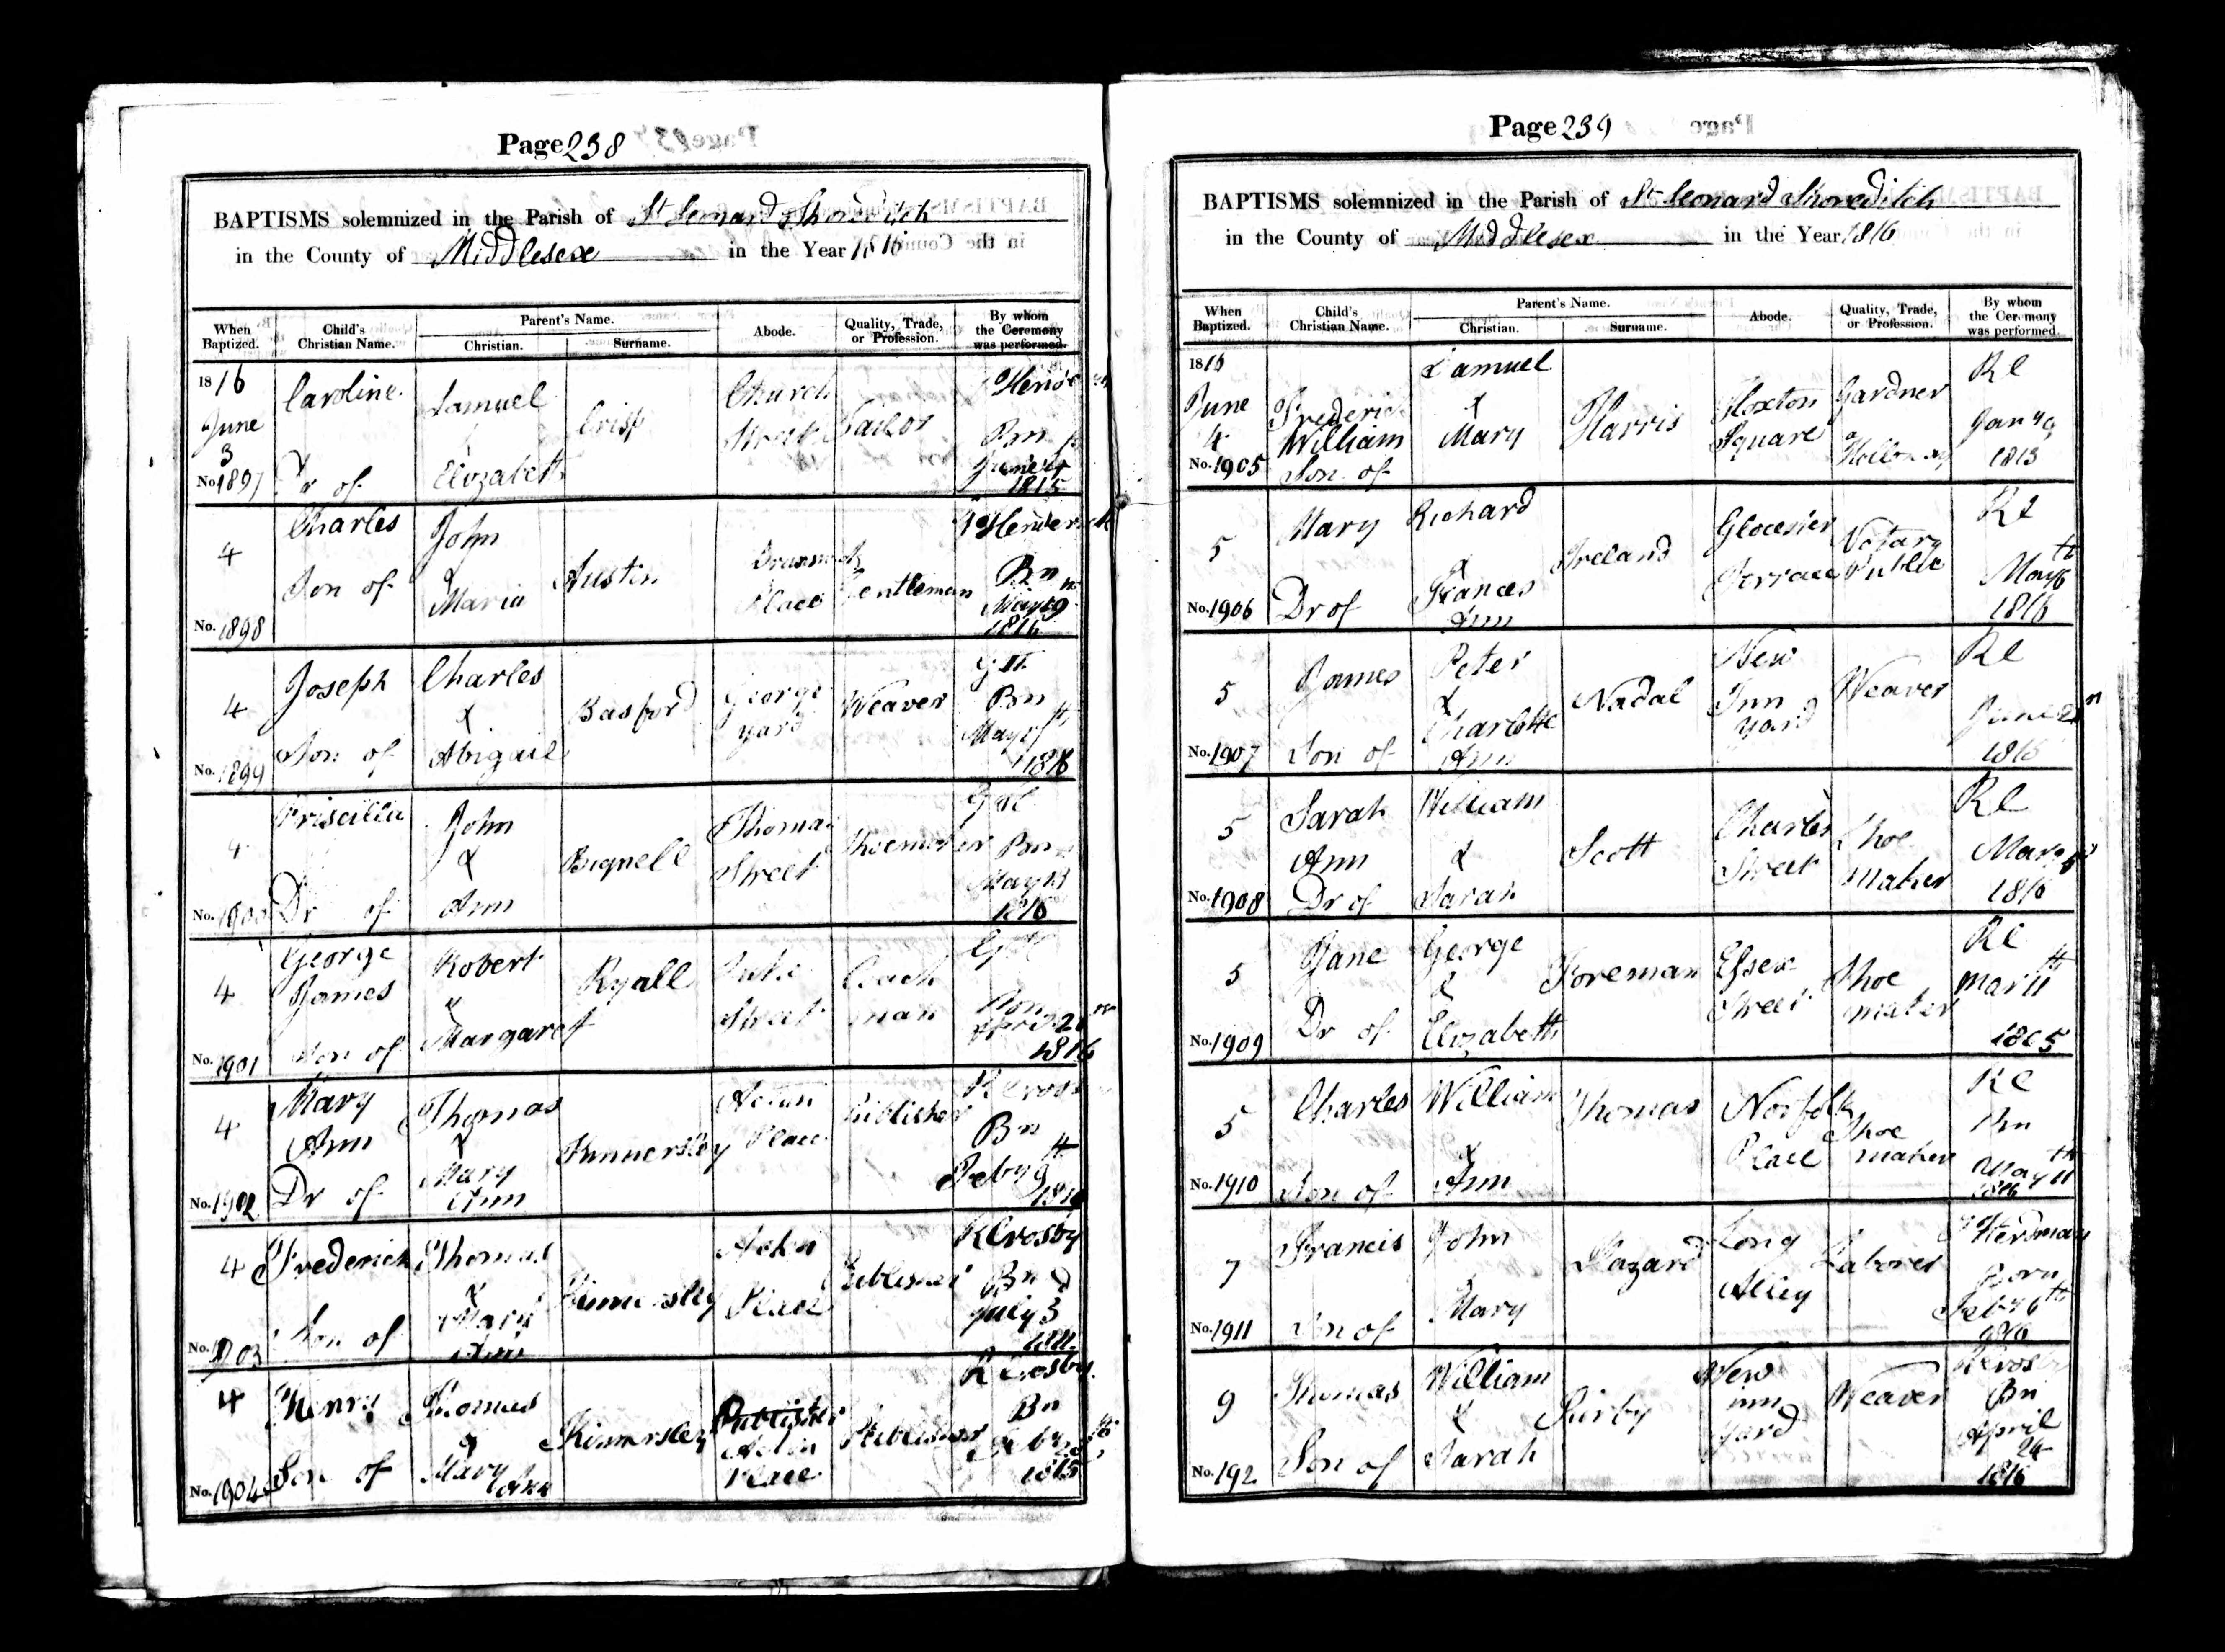 Page 238
BAPTISMS solemnized in the Parish of St Leonard Shoreditch
in the County of Middlesex in the Year 1816
When Baptized.
Child's Christian Name.
Parent's Name.
Christian.
Surname.
Abode.
Quality, Trade, or Profession.
By whom the Ceremony was performed.
1816
June
3
No. 1897
Caroline
Dr of
Samuel
&
Elizabeth
Crisp
Church
Street
Bn
June
1815
4
No. 1898
Charles
Son of
John
&
Maria
Austin
Place
Gentleman
Bn
May 19
1816
4
No. 1899
Joseph
Son of
Charles
&
Abigail
Basford
George
yard
Weaver
Bn
May
1816
4
No. 1900
Priscilla
Dr of
John
&
Ann
Bignell
Thomas
Street
Shoemaker
Bn
May 13
1816
4
No. 1901
George
James
Son of
Robert
&
Margaret
Ryall
Street
Coach
man
Born
1816
4
No. 1902
Mary
Ann
Dr of
Thomas
&
Mary
Ann
Kinnersley
Acton
Place
Publisher
R Cross
Bn
Feby 9th
4
No. 1903
Frederick
Son of
Thomas
&
Mary
Ann
Kinnersley
Acton
Place
Publisher
R Crosby
Bn
July 3d
4
No. 1904
Henry
Son of
Thomas
&
Mary Ann
Kinnersley
Publisher
Acton
Place
Publisher
R Crosby
Bn
1815
Page 239
BAPTISMS solemnized in the Parish of St Leonard Shoreditch
in the County of Middlesex in the Year 1816
When Baptized.
Child's Christian Name.
Parent's Name.
Christian.
Surname.
Abode.
Quality, Trade, or Profession.
By whom the Ceremony was performed.
1816
June
4
No. 1905
Frederick
William
Son of
Samuel
&
Mary
Harris
Hoxton
Square
Gardner
RC
1813
5
No. 1906
Mary
Dr of
Richard
&
Frances
Ann
Ireland
Glocester
Terrace
Notary
Public
RC
May 6th
1816
5
No. 1907
James
Son of
Peter
&
Charlotte
Ann
Nadal
New
Inn
Yard
Weaver
RC
June
5
No. 1908
Sarah
Ann
Dr of
William
&
Sarah
Scott
Charles
Street
Shoe
maker
RC
1816
5
No. 1909
Jane
Dr of
George
&
Elizabeth
Foreman
Essex
Street
Shoe
maker
RC
Mar 11th
1805
5
No. 1910
Charles
Son of
William
&
Ann
Thomas
Norfolk
Place
Shoe
maker
RC
Bn
May 11th
1816
7
No. 1911
Francis
Son of
John
&
Mary
Hazard
Long
Alley
Laborer
Born
1816
9
No. 192
Thomas
Son of
William
&
Sarah
Surby
New
inn
yard
Weaver
Bn
April
24
1816